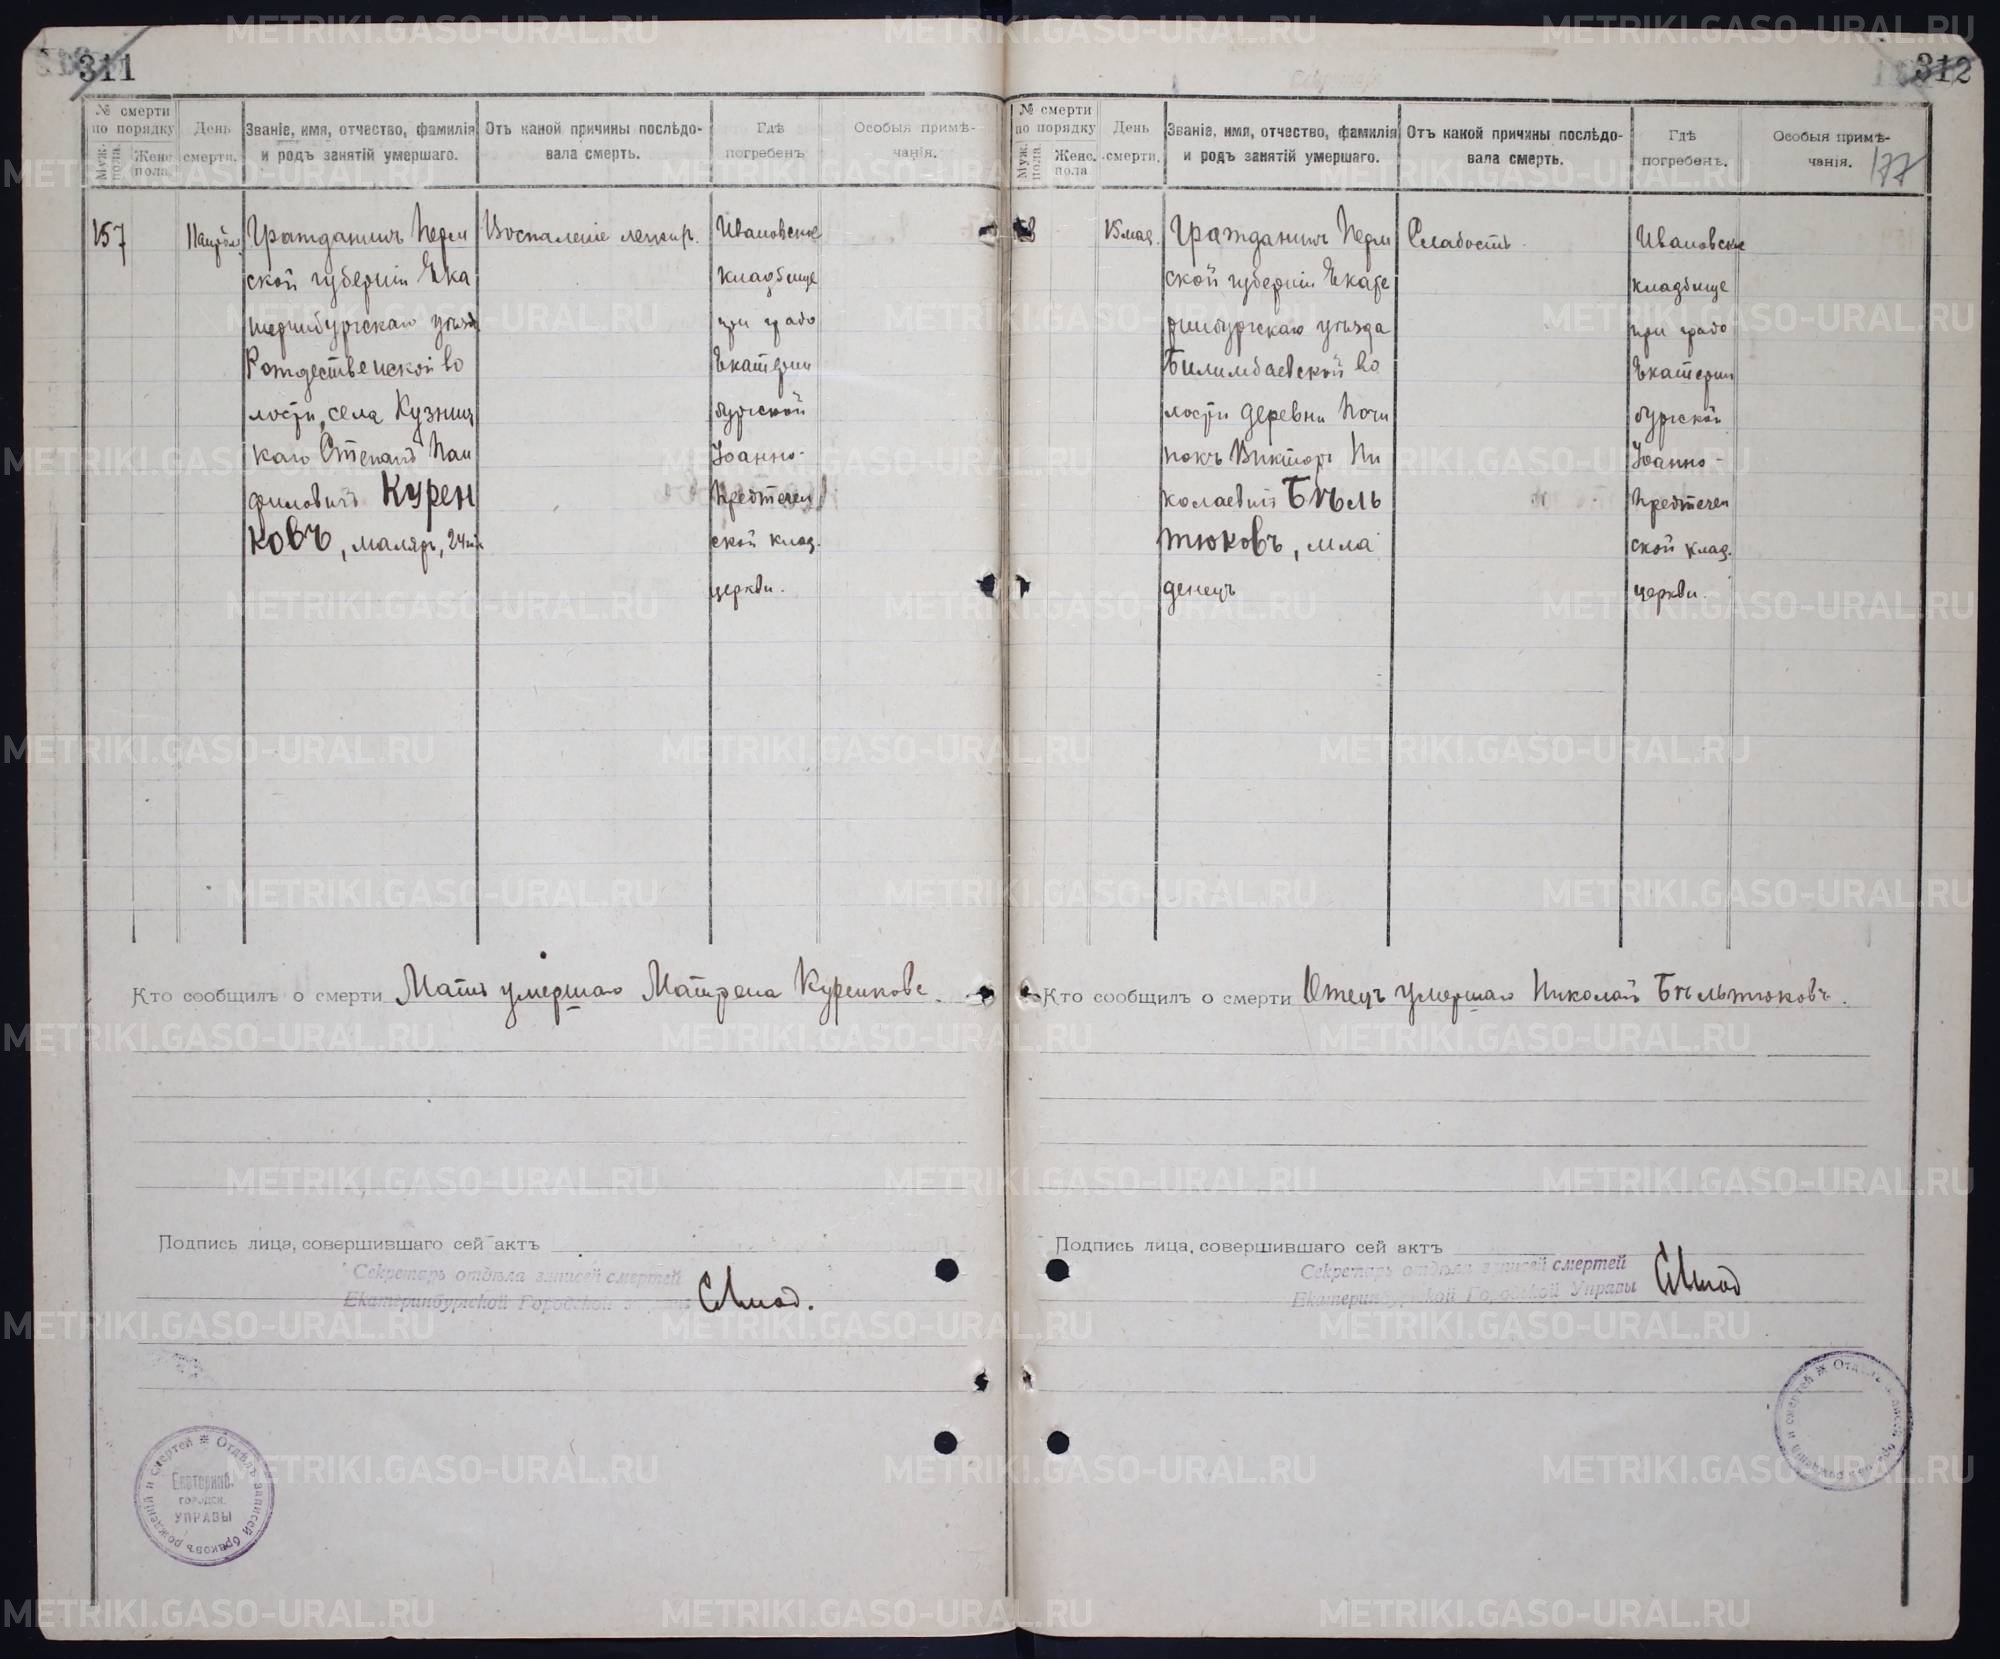 311
№ смерти по порядку
Муж. пола.
Женс. пола.
День смерти.
Званіе, имя, отчество, фамилія и родъ занятій умершаго.
Отъ какой причины послѣдовала смерть.
Гдѣ погребенъ.
Особыя примѣчанія.
157
Гражданинъ Перм
ской губерніи Ека
теринбургскаго уѣзда
Рождественской во
лости, села Кузнец
каго Степанъ Пан
филовичъ Курен
ковъ, маляръ, 24 лѣт
Воспаленіе легких.
Ивановское
кладбище
при градо
Екатерин
бургской
Іоанно-
Предтечен
ской клад.
церкви.
Кто сообщилъ о смерти Мать умершаго Матрена Куренкова.
Подпись лица, совершившаго сей актъ
Секретарь отдѣла записей смертей
Екатеринбургской Городской Управы
Отдѣлъ записей браковъ рожденій и смертей
Екатеринб.
городск.
УПРАВЫ
312
177
№ смерти по порядку
Муж. пола.
Женс. пола
День смерти.
Званіе, имя, отчество, фамилія и родъ занятій умершаго.
Отъ какой причины послѣдовала смерть.
Гдѣ погребенъ.
Особыя примѣчанія.
15 мая.
Гражданинъ Перм
ской губерніи Екате
ринбургскаго уѣзда
Билимбаевской во
лости деревни Почи
нокъ Викторъ Ни
колаевичъ Бѣль
тюковъ, мла
денецъ
Слабость.
Ивановское
кладбище
при градо
Екатерин
бургской
Іоанно-
Предтечен
ской клад.
церкви.
Кто сообщилъ о смерти Отецъ умершаго Николай Бѣльтюковъ.
Подпись лица, совершившаго сей актъ
Секретарь отдѣла записей смертей
Екатеринбургской Городской Управы
METRIKI.GASO-URAL.RU